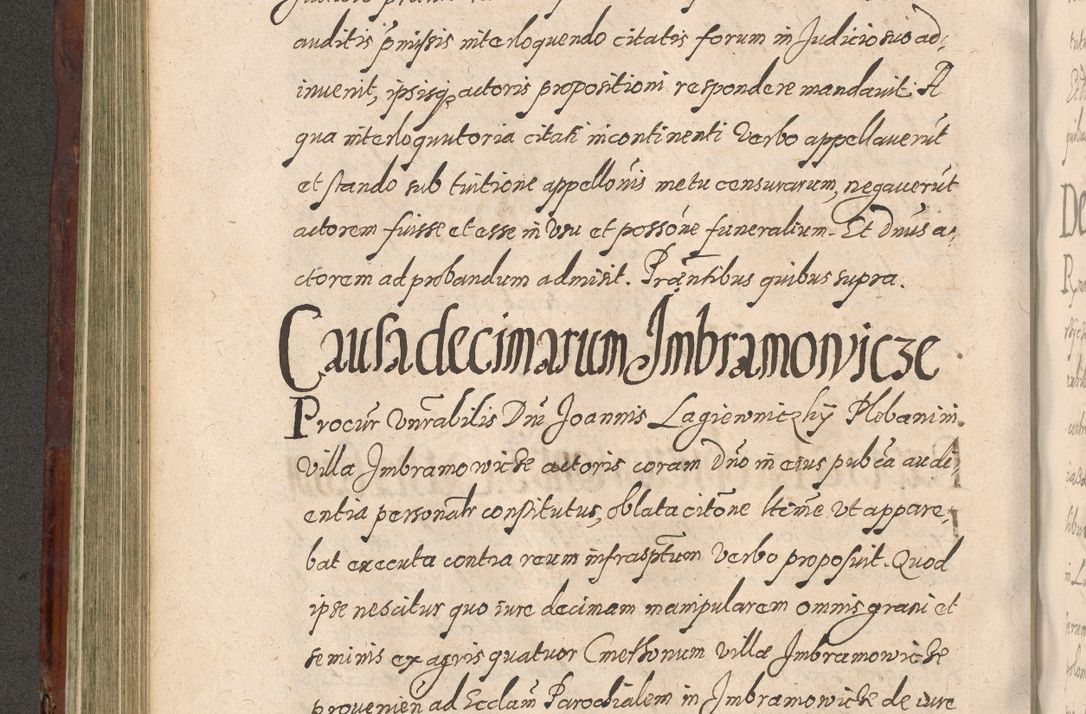 auditis pmissis interloquendo citatis forum in Judicio suo ad,
inuenit, ipsisq actoris propositioni respondere mandauit. A
qua interloquutoria citati incontinenti Verbo appellauerut
et stando sub tuitione appellonis metu censurarum, negauerut
actorem fuisse et esse in Vsu et possone funeralium. Et Dnus a,
ctorem ad probandum admisit. Praentibus quibus supra.
Causa decimarum Imbramowicze
Procur Vnrabilis Dni Joannis Lagiewniczkij Plebani in
Villa Imbramowicze actoris coram Dno in eius pubca audi,
entia personalr constitutus, oblata citone ltime Vt appare,
bat executa contra reum infrasptum Verbo proposuit. Quod
ipse nescitur quo iure decimam manipularem omnis grani et
seminis ex agris quatuor Cmethonum villæ Imbramowicze
prouenien ad Ecclam Parochialem in Imbramowicze de iure